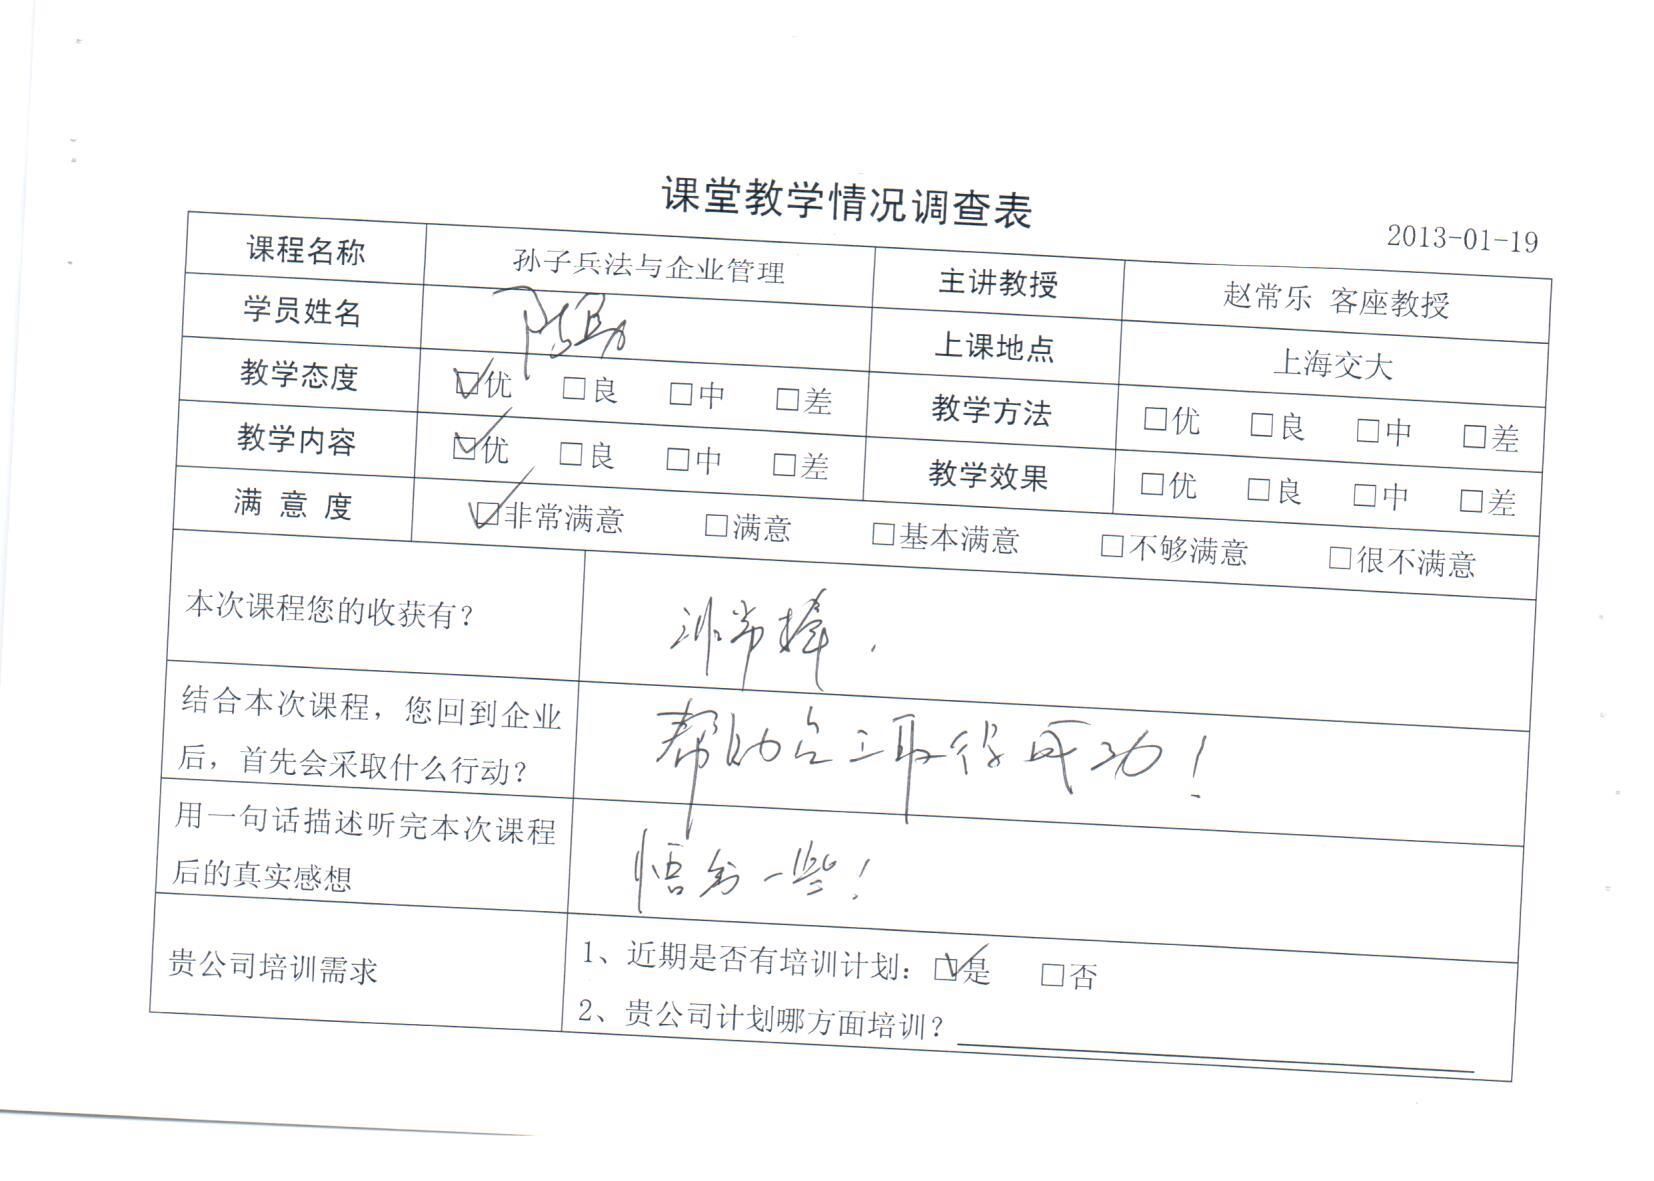 课堂教学情况调查表
2013-01-19
课程名称 孙子兵法与企业管理 主讲教授 赵常乐 客座教授
学员姓名 上课地点 上海交大
教学态度 ☑优 □良 □中 □差 教学方法 □优 □良 □中 □差
教学内容 ☑优 □良 □中 □差 教学效果 □优 □良 □中 □差
满意度 ☑非常满意 □满意 □基本满意 □不够满意 □很不满意
本次课程您的收获有？ 非常棒.
结合本次课程，您回到企业
后，首先会采取什么行动？ 帮助员工取得成功！
用一句话描述听完本次课程
后的真实感想 悟到一些！
贵公司培训需求 1、近期是否有培训计划：☑是 □否
2、贵公司计划哪方面培训？